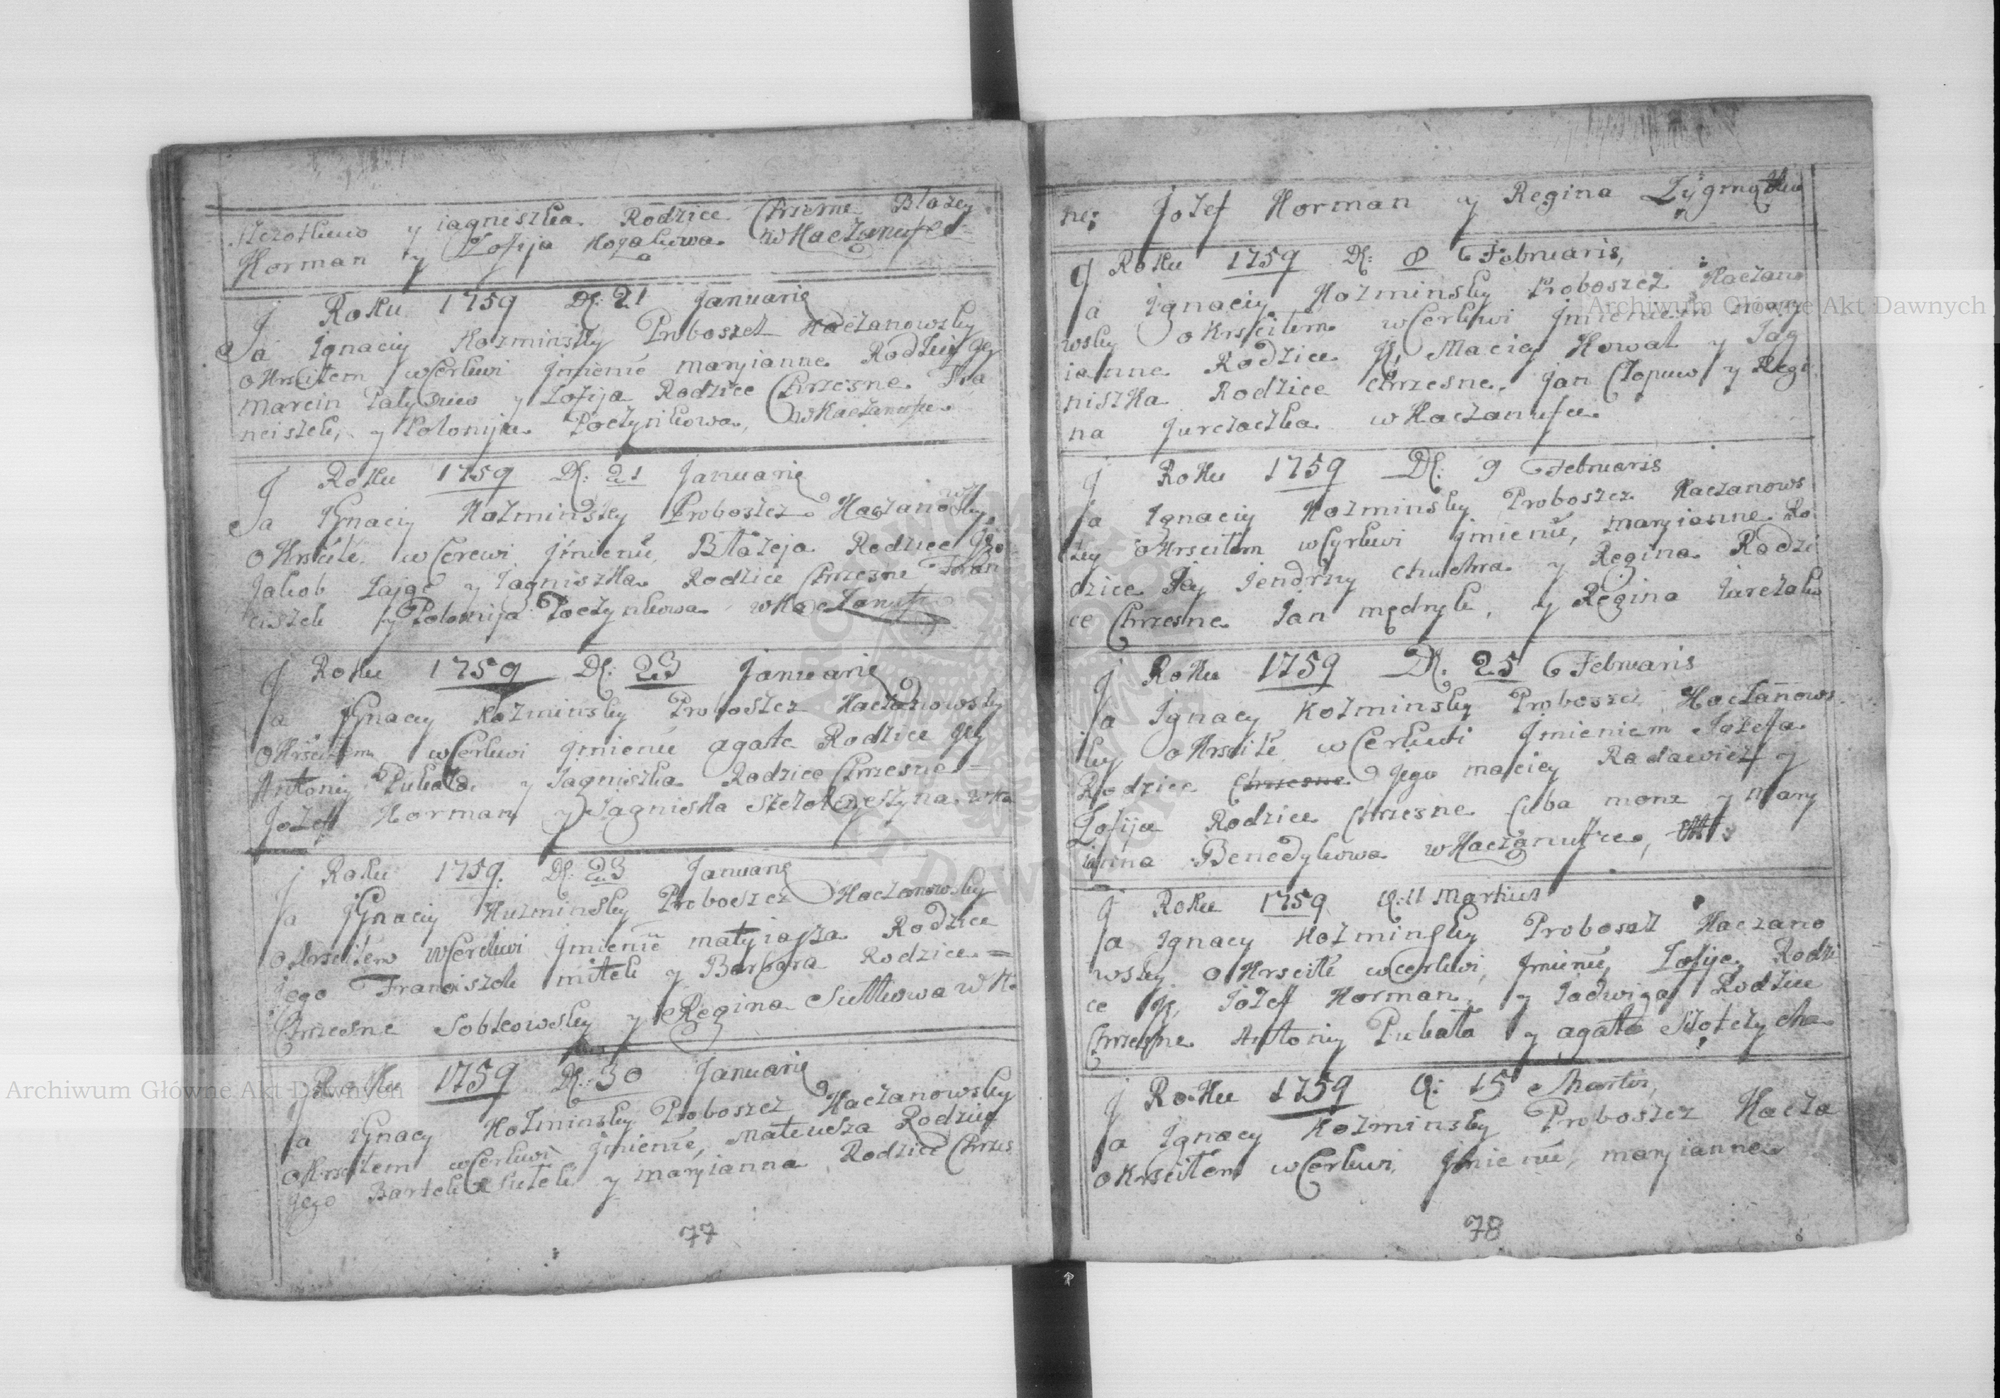 y jagniszka Rodzice Chrzesne Błażey
Horman y Zofija Kozakowa wKaczanufce
Roku 1759 D: 21 Januarie
Ja Ignaciy Kozminsky Proboszcz Kaczanowsky
okrsciłem wCerkwi Jmienie maryianne Rodzice Jey
Marcin y Zofija Rodzice Chrzesne Fra
nciszek, y Polonija Poczynkowa, wKaczanufce
Roku 1759 D: 21 Januarie
Ja Ignaciy Kozminsky Proboszcz Kaczanowsky
wCerewi Jmienie Błażeja Rodzice Jego
Jakob Zając y Jagniszka Rodzice Chrzesne Fran
ciszek y Polonija Poczynkowa wKaczanufce
J Roku 1759 D: 23 Januarie
Ja Ignaciy Kozminsky Proboszcz Kaczanowsky
okrsciłem wCerkwi Jmienie agate Rodzice Jey
Antoniy Pukała y Jagniszka Rodzice Chrzesne =
Jozeff Horman y Jagniska wKa
J Roku 1759 D: 23 Januarie
Ja Ignaciy Kuzminsky Proboszcz Kaczanowsky
okrsciłem wCerkwi Jmienie matyiasza Rodzice
jego Franciszek mitek y Barbara Rodzice =
Chrzesne Sobkowsky y Regina Sutkowa wK
J Roku 1759 D: 30 Januarie
Ja Ignacy Kozminsky Proboszcz Kaczanowsky
okrsciłem wCerkwi Jmienie, Mateusza Rodzice
jego Bartek Sutek y maryianna Rodzice Chrzes
77
ne; Jozef Horman y Regina
J Roku 1759 D: 8 Februaris,
Ja Ignaciy Kozminsky Proboszcz Kaczano
wsky okrsciłem wCerkwi Jmieniem mary
ianne Rodzice Maciey Kowal y Jag
niszka Rodzice Chrzesne, Jan y Regi
na Jurczaczka wKaczanufce
J Roku 1759 D: 9 Februaris
Ja Ignaciy Kozminsky Proboszcz Kaczanows
ky okrsciłem wCyrkwi Jmienie, maryianne Ro
dzice Jey Jendrzy chuchra y Regina Rodzi
ce Chrzesne Jan mędryk, y Regina
J Roku 1759 D: 25 Februaris
Ja Ignacy Kozminsky Proboszcz Kaczanows
ky wCerkwi Jmieniem Jozeffa
Rodzice Chrzesne Jego maciey Radaewicz y
Zofija Rodzice Chrzesne Cuba y Mary
ianna Benedykowa wKaczanufce,
J Roku 1759 D: 11 Martius
Ja Ignacy Kozminsky Proboszcz Kaczano
wsky wCerkwi, Jmienie, Zofije Rodzi
ce Jozeff Horman, y Jadwiga Rodzice
Chrzesne Antoniy Pukała y agata
J Roku 1759 D: 15 Martis,
Ja Ignacy Kozminsky Proboszcz Kacza
okrsciłem wCerkwi, Jmienie, maryianne
78
Archiwum Główne Akt Dawnych
Archiwum Główne Akt Dawnych